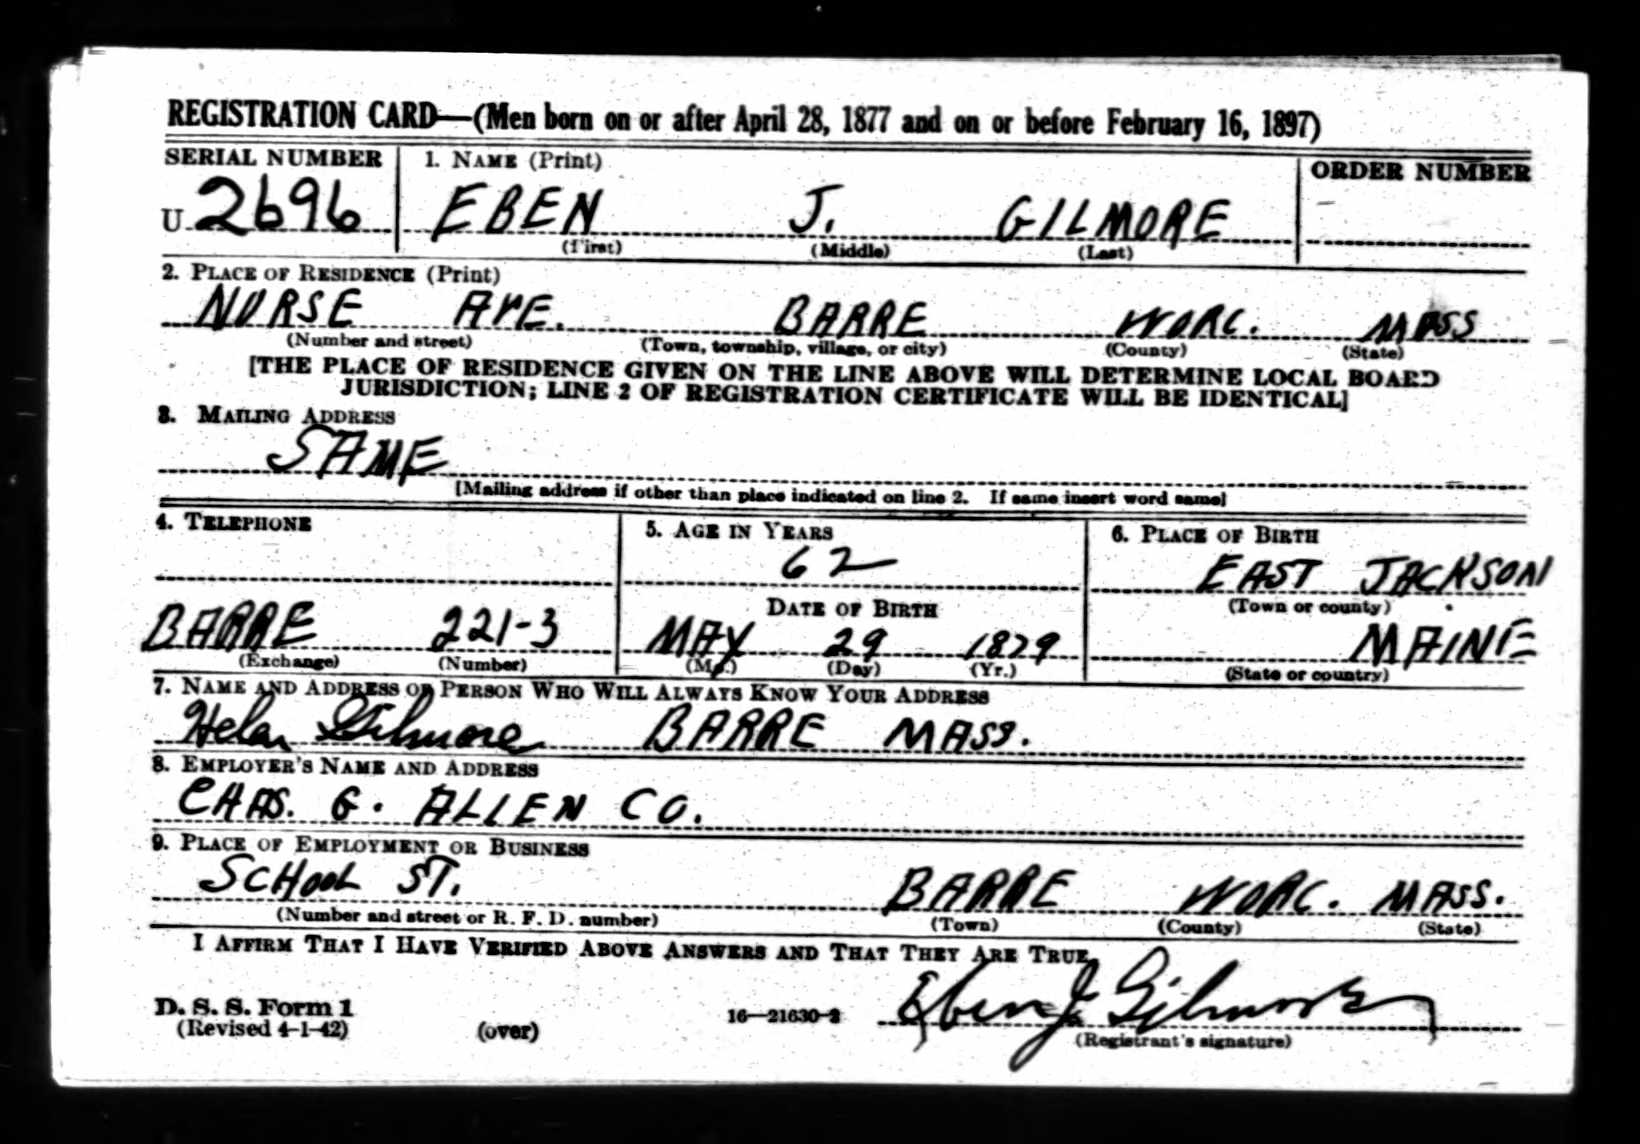 REGISTRATION CARD—(Men born on or after April 28, 1877 and on or before February 16, 1897)
SERIAL NUMBER 1. NAME (Print) ORDER NUMBER
U 2696 EBEN J. GILMORE
(First) (Middle) (Last)
2. PLACE OF RESIDENCE (Print)
NURSE AVE. BARRE WORC. MASS
(Number and street) (Town, township, village, or city) (County) (State)
[THE PLACE OF RESIDENCE GIVEN ON THE LINE ABOVE WILL DETERMINE LOCAL BOARD
JURISDICTION; LINE 2 OF REGISTRATION CERTIFICATE WILL BE IDENTICAL]
3. MAILING ADDRESS
SAME
[Mailing address if other than place indicated on line 2. If same insert word same]
4. TELEPHONE 5. AGE IN YEARS 6. PLACE OF BIRTH
62 EAST JACKSON
DATE OF BIRTH (Town or county)
BARRE 221-3 MAY 29 1879 MAINE
(Exchange) (Number) (Mo.) (Day) (Yr.) (State or country)
7. NAME AND ADDRESS OF PERSON WHO WILL ALWAYS KNOW YOUR ADDRESS
Helen Gilmore BARRE MASS.
8. EMPLOYER'S NAME AND ADDRESS
CHAS. G. ALLEN CO.
9. PLACE OF EMPLOYMENT OR BUSINESS
SCHOOL ST. BARRE WORC. MASS.
(Number and street or R. F. D. number) (Town) (County) (State)
I AFFIRM THAT I HAVE VERIFIED ABOVE ANSWERS AND THAT THEY ARE TRUE.
D. S. S. Form 1
(Revised 4-1-42) (over) 16—21630-2 Eben J Gilmore
(Registrant's signature)